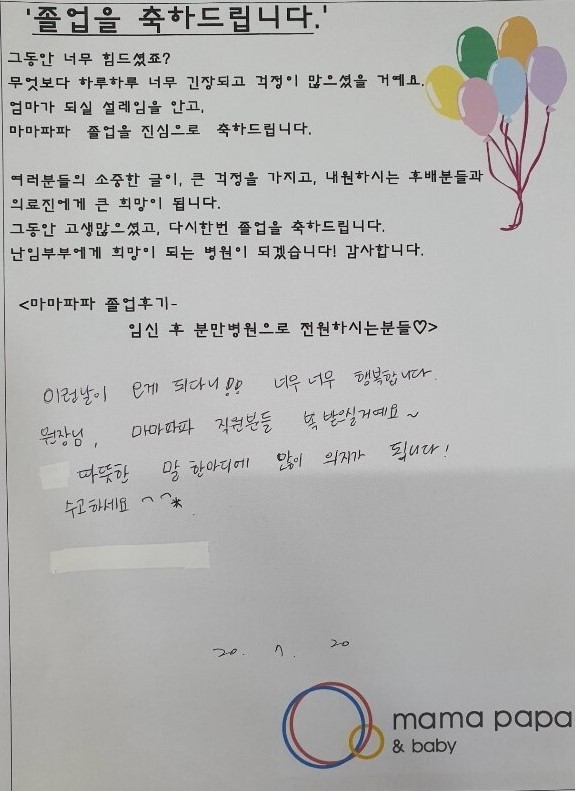 '졸업을 축하드립니다.'
그동안 너무 힘드셨죠?
무엇보다 하루하루 너무 긴장되고 걱정이 많으셨을 거예요.
엄마가 되실 설레임을 안고,
마마파파 졸업을 진심으로 축하드립니다.
여러분들의 소중한 글이, 큰 걱정을 가지고, 내원하시는 후배분들과
의료진에게 큰 희망이 됩니다.
그동안 고생많으셨고, 다시한번 졸업을 축하드립니다.
난임부부에게 희망이 되는 병원이 되겠습니다! 감사합니다.
<마마파파 졸업후기-
임신 후 분만병원으로 전원하시는분들♡>
이런날이 오게 되다니!! 너무 너무 행복합니다.
원장님, 마마파파 직원분들 복 받으실거예요~
따뜻한 말 한마디에 많이 의지가 됩니다!
수고하세요 ^^*
20. 7. 20
mama papa
& baby